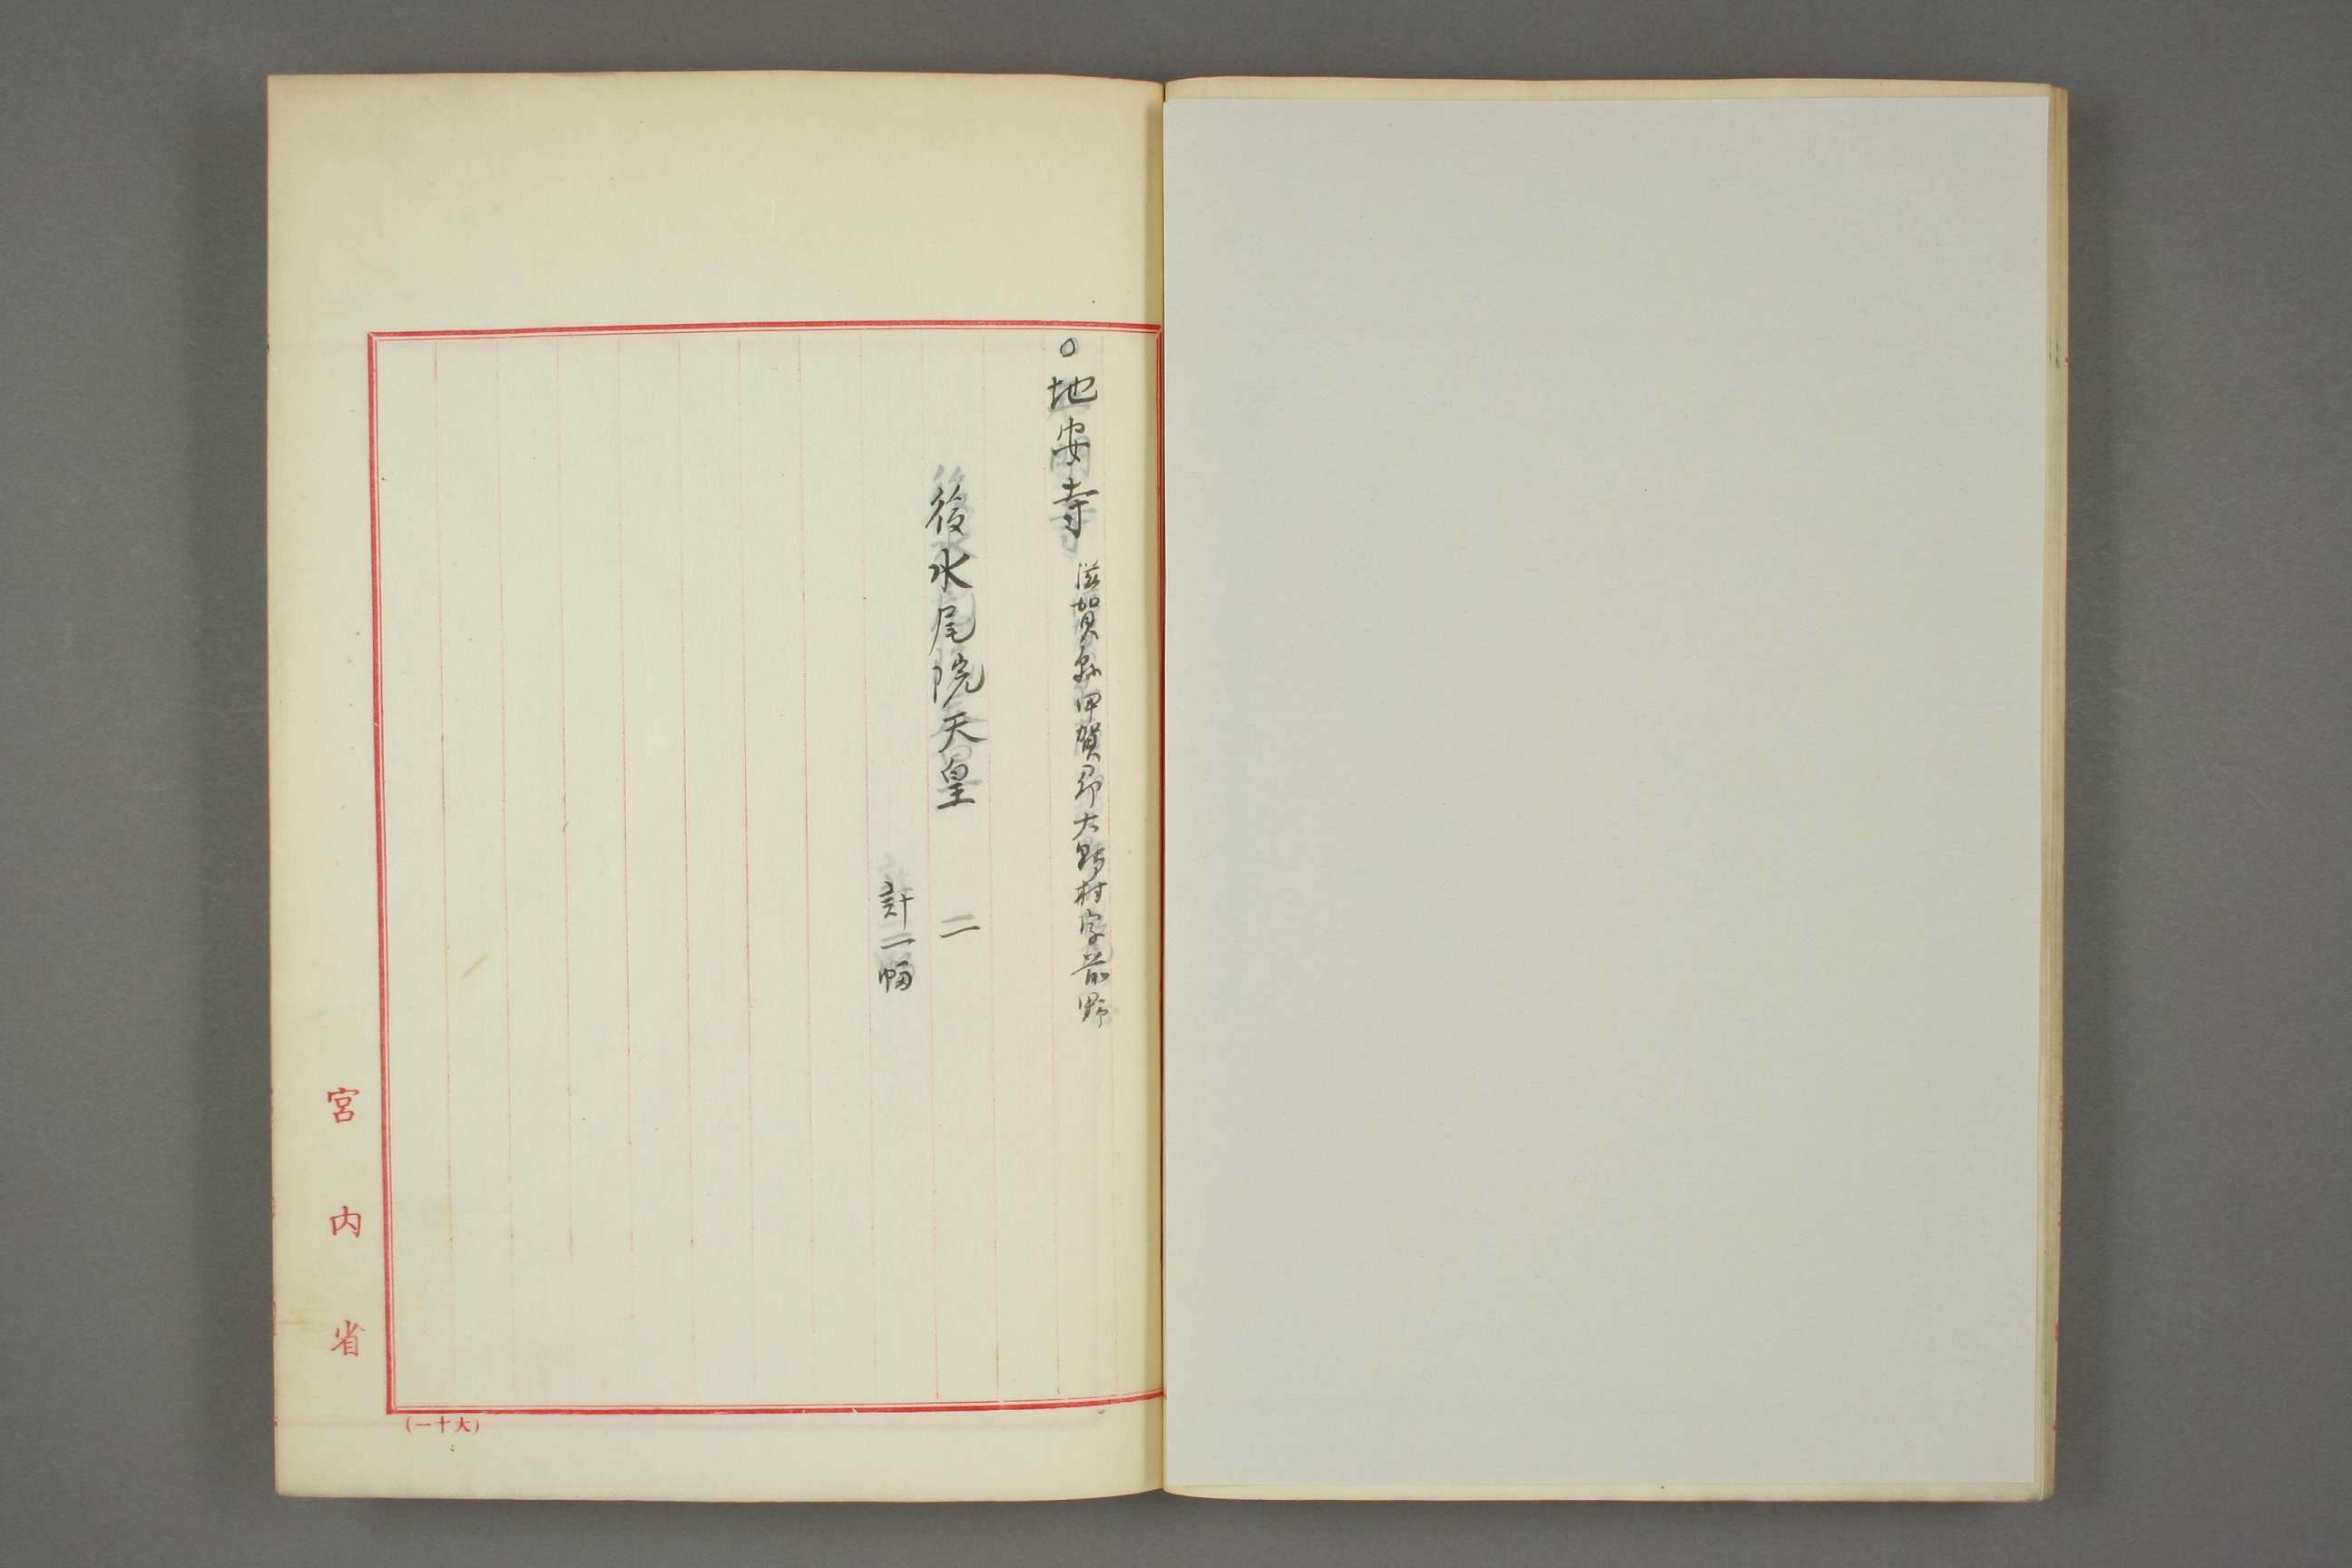 ○地安寺 滋賀縣甲賀郡大野村字前野
後水尾院天皇 二
計二幅
宮内省
(一十大)